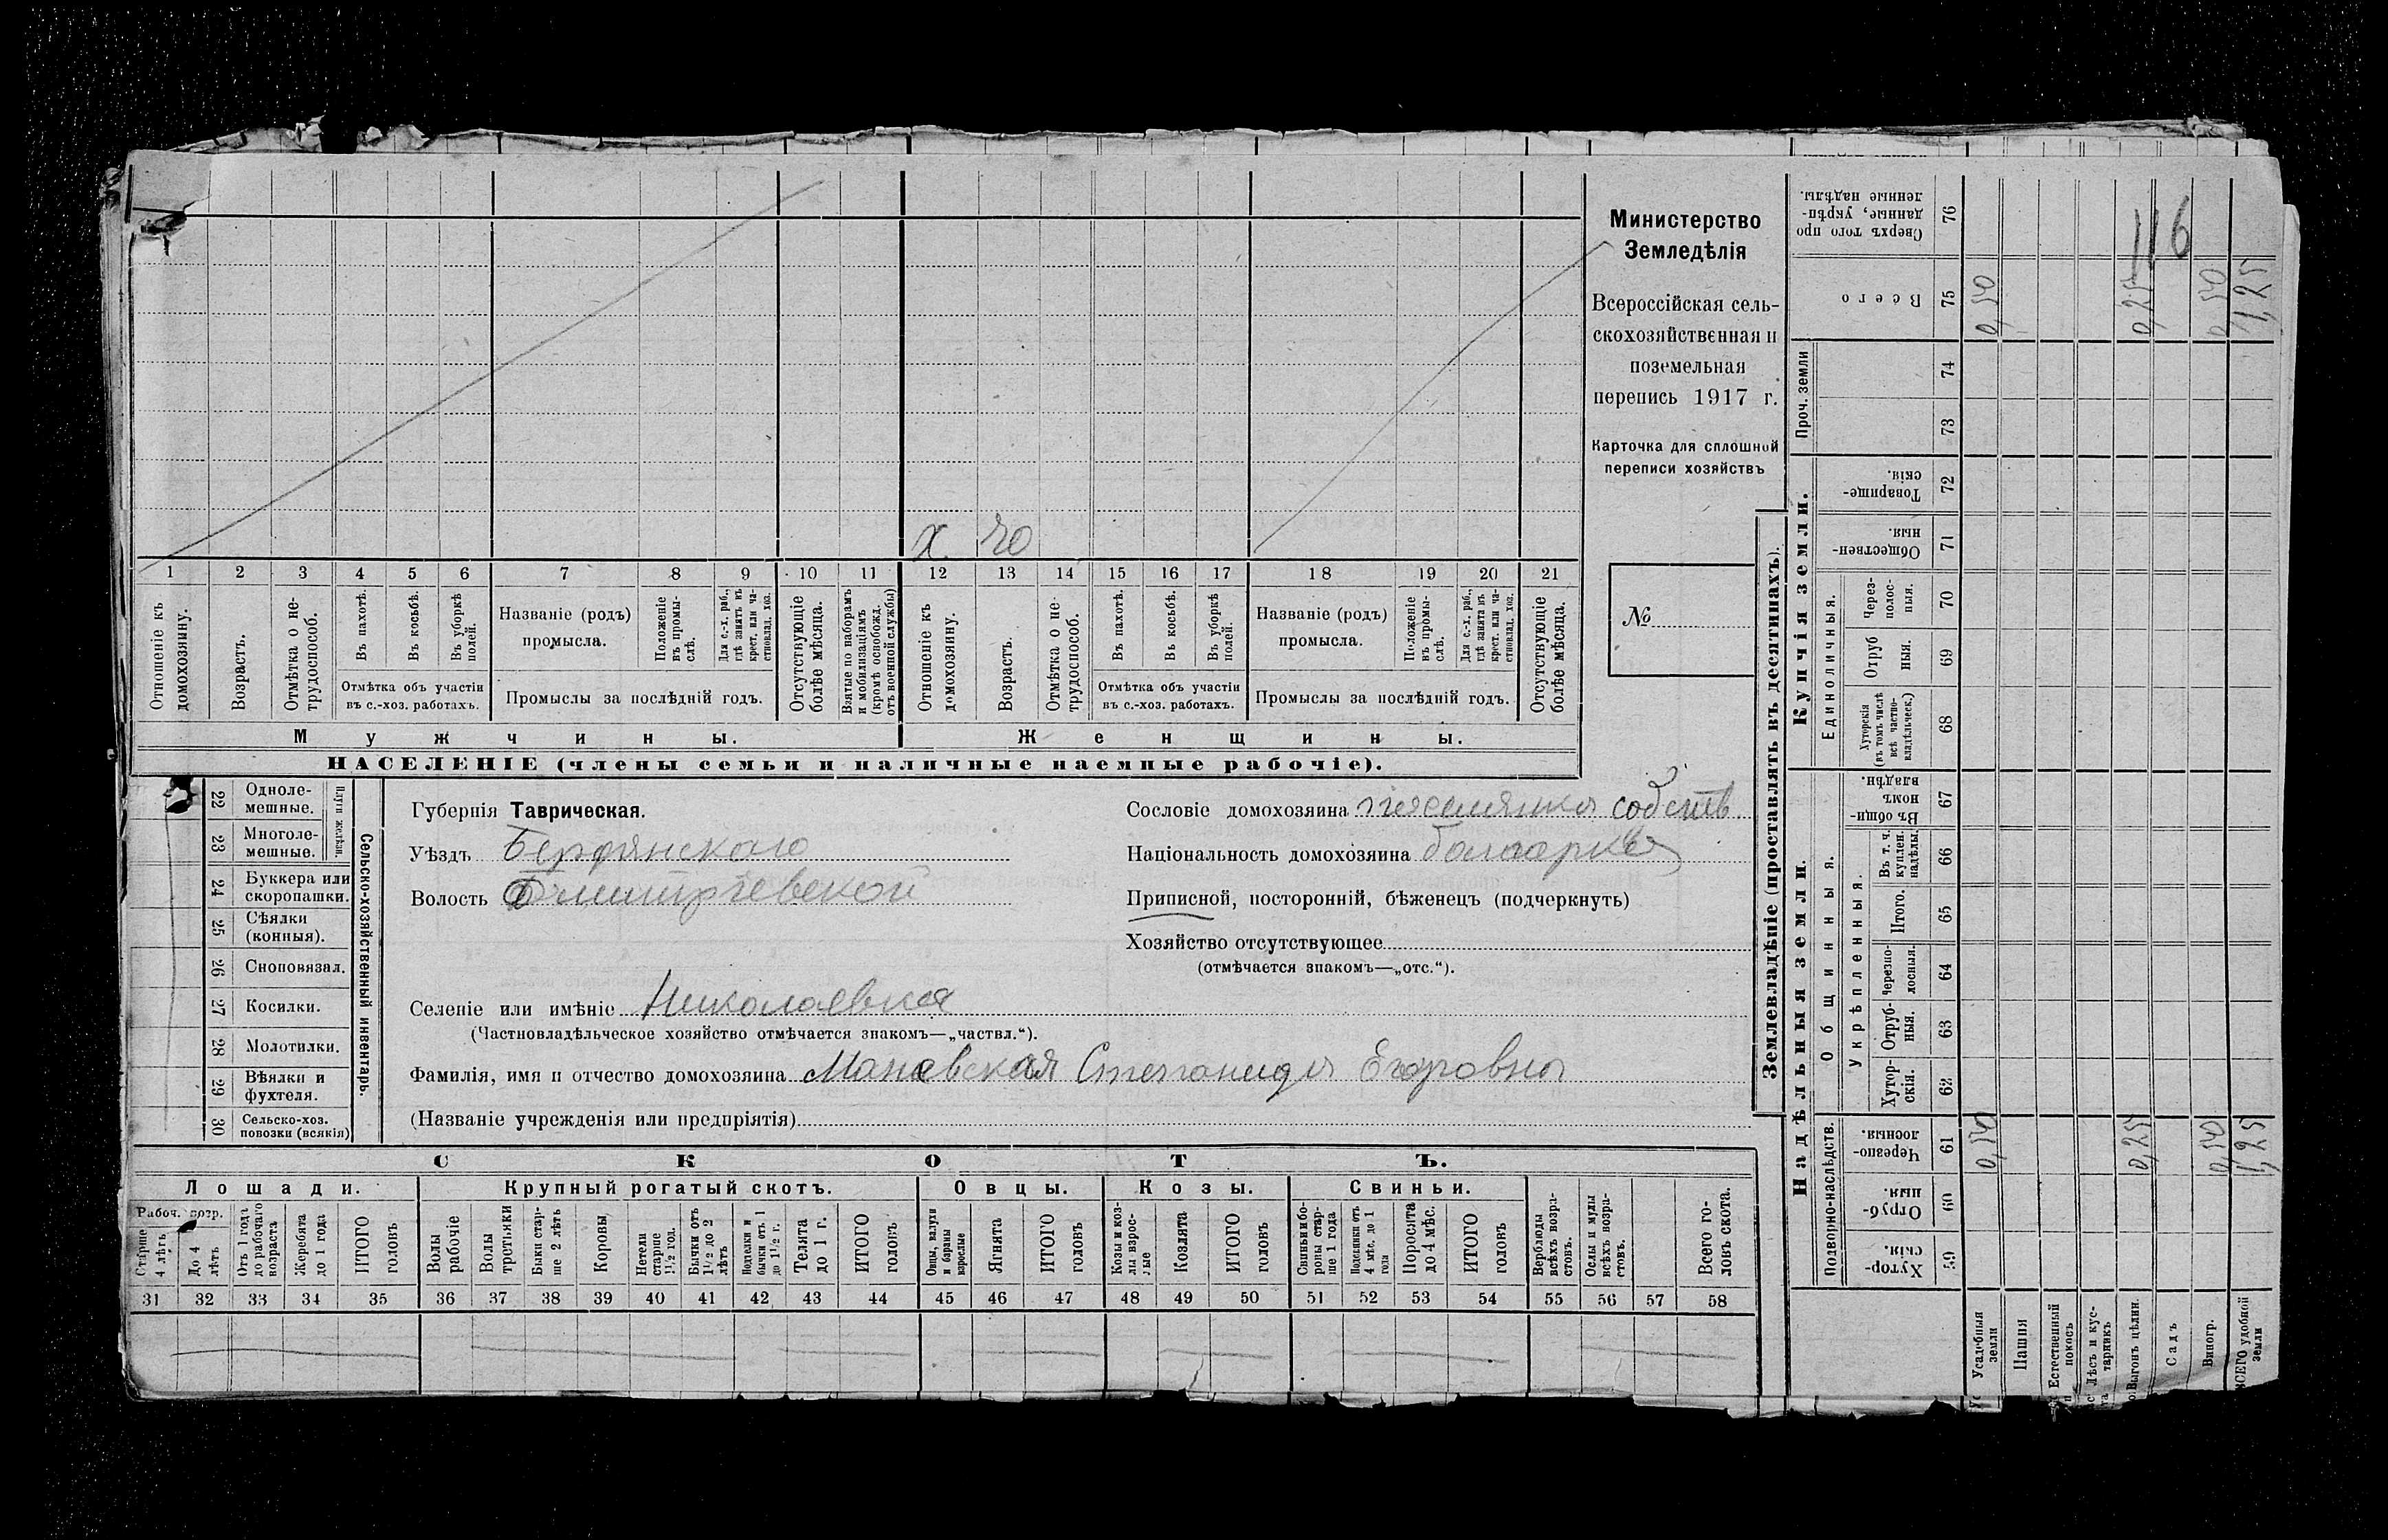 Министерство
Земледѣлія
Всероссійская сель-
скохозяйственная и
поземельная
перепись 1917 г.
Карточка для сплошной
переписи хозяйствъ
№
х. 70
1 2 3 4 5 6 7 8 9 10 11 12 13 14 15 16 17 18 19 20 21
Отношеніе къ домохозяину.
Возрастъ.
Отмѣтка о не-трудоспособ.
Въ пахотѣ.
Въ косьбѣ.
Въ уборкѣ полей.
Отмѣтка объ участіи
въ с.-хоз. работахъ.
Названіе (родъ)
промысла.
Положеніе въ промы-слѣ.
Для с.-х. раб., гдѣ занятъ въ крест. или ча-стновлад. хоз.
Промыслы за послѣдній годъ.
Отсутствующіе болѣе мѣсяца.
Взятые по наборамъ и мобилизаціямъ (кромѣ освобожд. отъ военной службы)
Отношеніе къ домохозяину.
Возрастъ.
Отмѣтка о не-трудоспособ.
Въ пахотѣ.
Въ косьбѣ.
Въ уборкѣ полей.
Отмѣтка объ участіи
въ с.-хоз. работахъ.
Названіе (родъ)
промысла.
Положеніе въ промы-слѣ.
Для с.-х. раб., гдѣ занятъ въ крест. или ча-стновлад. хоз.
Промыслы за послѣдній годъ.
Отсутствующіе болѣе мѣсяца.
Мужчины. Женщины.
НАСЕЛЕНІЕ (члены семьи и наличные наемные рабочіе).
22 Одноле-мешные.
23 Многоле-мешные.
Плуги желѣзн.
24 Буккера или скоропашки.
25 Сѣялки (конныя).
26 Сноповязал.
27 Косилки.
28 Молотилки.
29 Вѣялки и фухтеля.
30 Сельско-хоз. повозки (всякія)
Сельско-хозяйственный инвентарь.
Губернія Таврическая.
Уѣздъ Бердянскаго
Волость Дмитріевской
Селеніе или имѣніе Николаевка
(Частновладѣльческое хозяйство отмѣчается знакомъ—„частвл.“).
Фамилія, имя и отчество домохозяина Манавская Степанида Егоровна
(Названіе учрежденія или предпріятія)
Сословіе домохозяина поселянка собств.
Національность домохозяина болгарка
Приписной, посторонній, бѣженецъ (подчеркнуть)
Хозяйство отсутствующее
(отмѣчается знакомъ—„отс.“).
СКОТЪ.
Лошади. Крупный рогатый скотъ. Овцы. Козы. Свиньи.
Рабоч. возр.
Старше 4 лѣтъ
До 4 лѣтъ
Отъ 1 года до рабочаго возраста
Жеребята до 1 года
ИТОГО головъ
Волы рабочіе
Волы третьяки
Быки стар-ше 2 лѣтъ
Коровы
Нетели старше 1½ год.
Бычки отъ 1½ до 2 лѣтъ
Нетелки и бычки отъ 1 до 1½ г.
Телята до 1 г.
ИТОГО головъ
Овцы, валухи и бараны взрослые
Ягнята
ИТОГО головъ
Козы и коз-лы взрос-лые
Козлята
ИТОГО головъ
Свиньи и бо-ровы стар-ше 1 года
Подсвинки отъ 4 мѣс. до 1 года
Поросята до 4 мѣс.
ИТОГО головъ
Верблюды всѣхъ возра-стовъ.
Ослы и мулы всѣхъ возра-стовъ.
Всего го-ловъ скота.
31 32 33 34 35 36 37 38 39 40 41 42 43 44 45 46 47 48 49 50 51 52 53 54 55 56 57 58
Землевладѣніе (проставлять въ десятинахъ).
Надѣльныя земли.
Купчія земли.
Проч. земли
Подворно-наслѣдств.
Общинныя.
Укрѣпленныя.
Единоличныя.
116
Сверхъ того про данные, укрѣп-ленные надѣлы. 76
Всего 75 0,50 0,25 0,50 1,25
74
73
Товарище-скія. 72
Обществен-ныя. 71
Через-полос-ныя. 70
Отруб ныя. 69
Хуторскія (въ томъ числѣ всѣ частно-владѣльческ.) 68
Въ общи-номъ владѣн. 67
Въ т. ч. куплен. надѣлы. 66
Итого. 65
Черезпо-лосныя. 64
Отруб-ныя. 63
Хутор-скія. 62
Черезпо-лосныя. 61 0,50 0,25 0,50 1,25
Отруб-ныя. 60
Хутор-скія. 59
Усадебныя земли
Пашня
Естественный покосъ
Лѣсъ и кус-тарникъ
Выгонъ цѣлин.
Садъ
Виногр.
ВСЕГО удобной земли